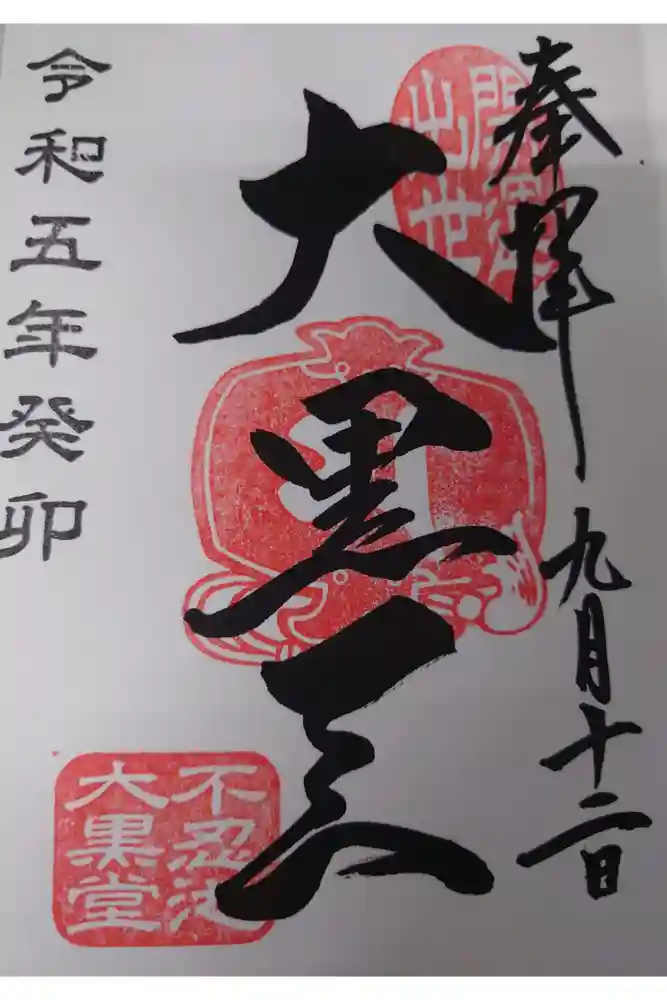 奉拝
九月十二日
開運
出世
大黒天
不忍池
大黒堂
令和五年癸卯